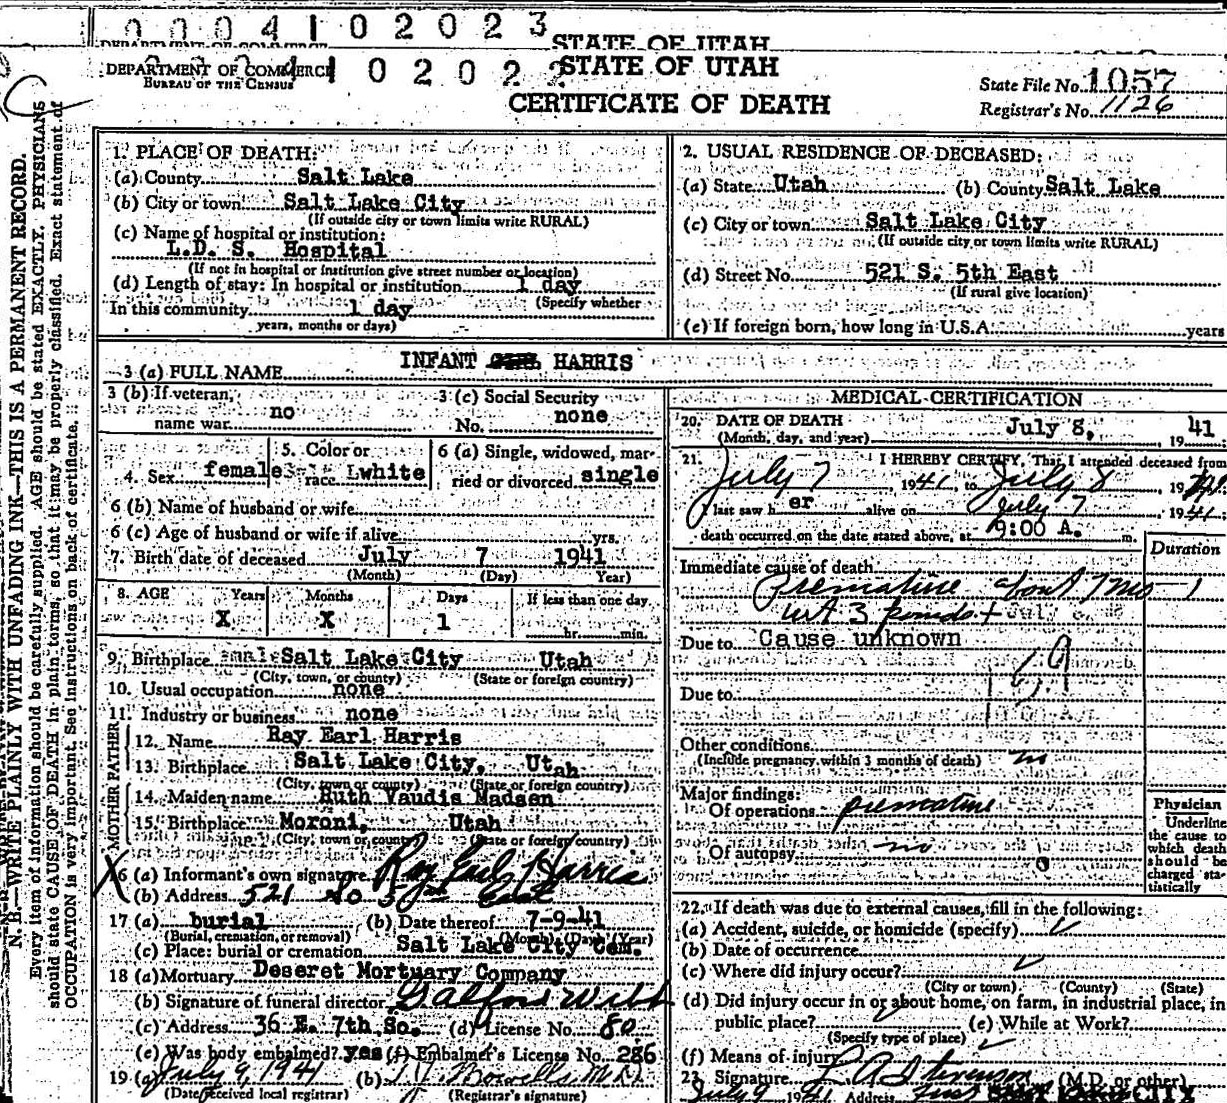 0 0 0 4 1 0 2 0 2 3
STATE OF UTAH
DEPARTMENT OF COMMERCE
BUREAU OF THE CENSUS
4 1 0 2 0 2 2
STATE OF UTAH
CERTIFICATE OF DEATH
State File No. 1057
Registrar's No. 1126
N. B.—WRITE PLAINLY WITH UNFADING INK—THIS IS A PERMANENT RECORD.
Every item of information should be carefully supplied. AGE should be stated EXACTLY. PHYSICIANS
should state CAUSE OF DEATH in plain terms, so that it may be properly classified. Exact statement of
OCCUPATION is very important. See instructions on back of certificate.
1. PLACE OF DEATH:
(a) County Salt Lake
(b) City or town Salt Lake City
(If outside city or town limits write RURAL)
(c) Name of hospital or institution:
L.D. S. Hospital
(If not in hospital or institution give street number or location)
(d) Length of stay: In hospital or institution 1 day
(Specify whether
In this community 1 day
years, months or days)
2. USUAL RESIDENCE OF DECEASED:
(a) State Utah (b) County Salt Lake
(c) City or town Salt Lake City
(If outside city or town limits write RURAL)
(d) Street No. 521 S. 5th East
(If rural give location)
(e) If foreign born, how long in U.S.A. years
3 (a) FULL NAME INFANT HARRIS
3 (b) If veteran, name war no
3 (c) Social Security No. none
4. Sex female
5. Color or race white
6 (a) Single, widowed, married or divorced single
6 (b) Name of husband or wife
6 (c) Age of husband or wife if alive yrs.
7. Birth date of deceased July 7 1941
(Month) (Day) Year)
8. AGE Years Months Days If less than one day
X X 1 hr. min.
9. Birthplace Salt Lake City Utah
(City, town, or county) (State or foreign country)
10. Usual occupation none
11. Industry or business none
FATHER
12. Name Ray Earl Harris
13. Birthplace Salt Lake City, Utah
(City, town or county) (State or foreign country)
MOTHER
14. Maiden name Ruth Vaudis Madsen
15. Birthplace Moroni, Utah
(City, town or county) (State or foreign country)
X 16 (a) Informant's own signature Ray Earl Harris
(b) Address 521 So 5th East
17 (a) burial (b) Date thereof 7-9-41
(Burial, cremation, or removal) (Month) (Day) (Year)
(c) Place: burial or cremation Salt Lake City Cem.
18 (a) Mortuary Deseret Mortuary Company
(b) Signature of funeral director Webb
(c) Address 36 E. 7th So. (d) License No. 80
(e) Was body embalmed? yes (f) Embalmer's License No. 286
19 (a) July 9, 1941 (b) M.D.
(Date received local registrar) (Registrar's signature)
MEDICAL CERTIFICATION
20. DATE OF DEATH July 8, 1941
(Month, day, and year)
21. I HEREBY CERTIFY, That I attended deceased from
July 7 1941, to July 8 1941
I last saw her alive on July 7 1941;
death occurred on the date stated above, at 9:00 A. m.
Duration
Immediate cause of death
Premature about 7 mo
wt 3 pounds +
Due to Cause unknown
Due to
Other conditions
(Include pregnancy within 3 months of death) no
Major findings:
Of operations premature
Of autopsy no
Physician
Underline
the cause to
which death
should be
charged sta-
tistically
22. If death was due to external causes, fill in the following:
(a) Accident, suicide, or homicide (specify)
(b) Date of occurrence
(c) Where did injury occur?
(City or town) (County) (State)
(d) Did injury occur in or about home, on farm, in industrial place, in
public place? (e) While at Work?
(Specify type of place)
(f) Means of injury
23. Signature Stevenson (M.D. or other)
July 9 1941 Address CITY